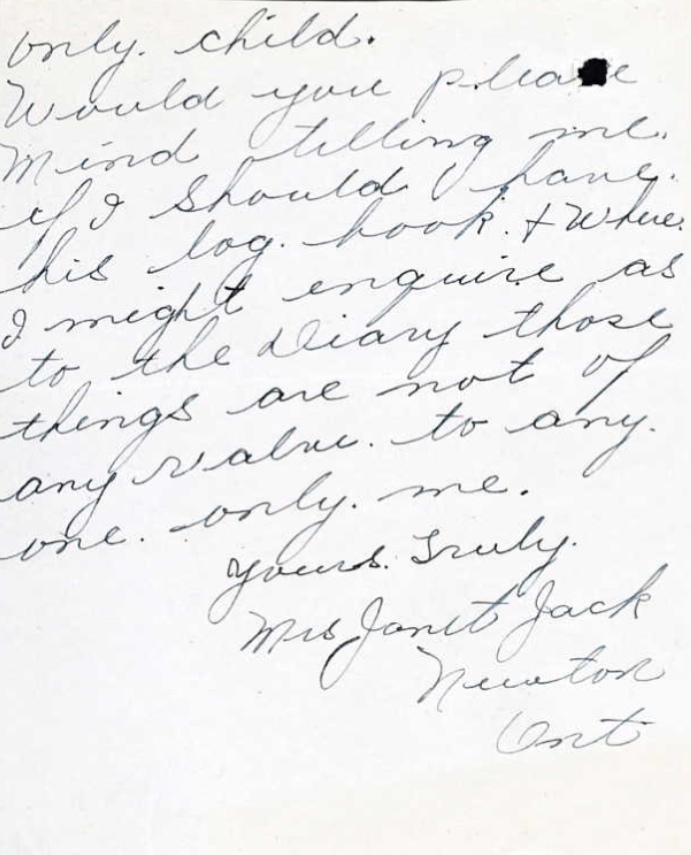 only. child.
Would you please
Mind telling me.
if I should have.
his log. book. + Where.
I might enquire as
to the Diary those
things are not of
any value. to any.
one. only. me.
yours. Truly.
Mrs Janet Jack
Newton
Ont